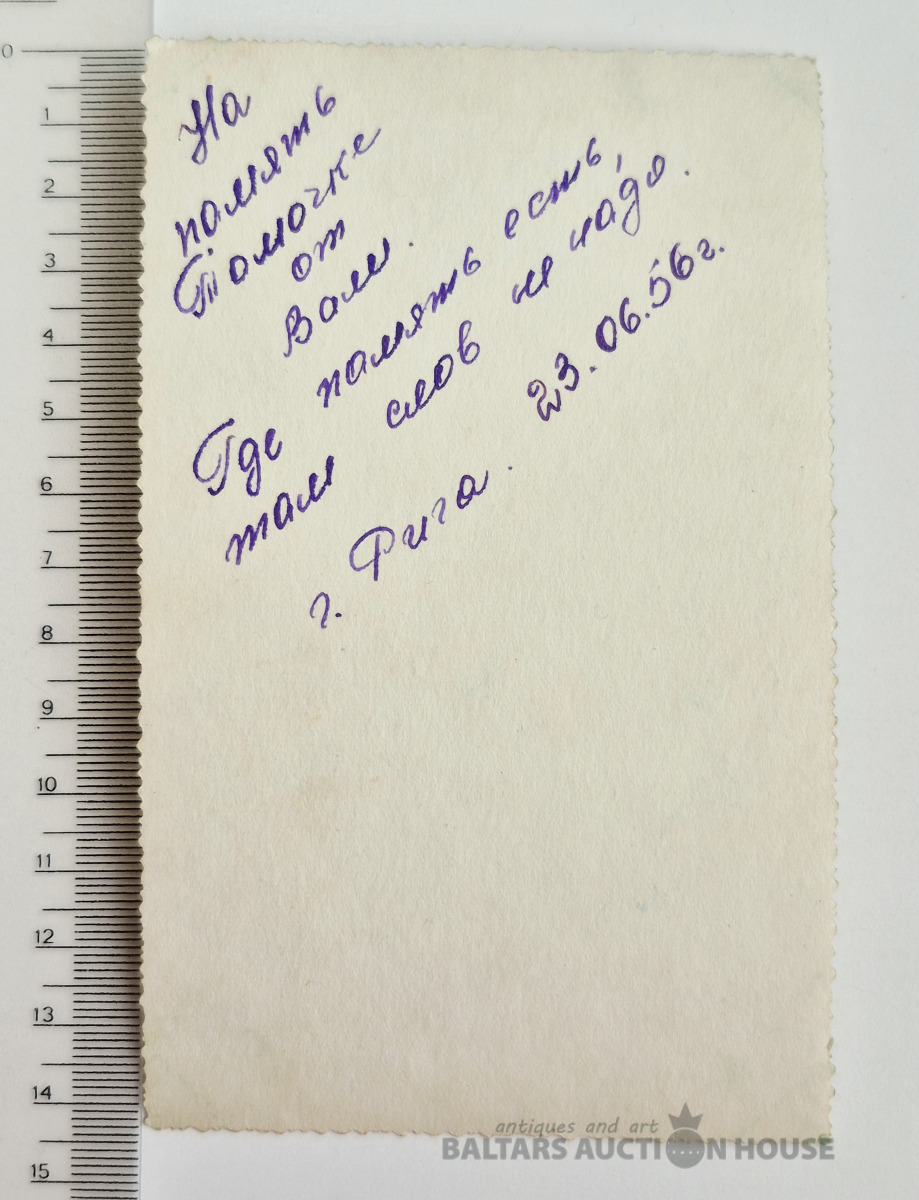 На
память
Томочке
от
Вали.
Где память есть,
там слов не надо.
г. Рига. 23.06.56г.
0
1
2
3
4
5
6
7
8
9
10
11
12
13
14
15
antiques and art
BALTARS AUCTION HOUSE